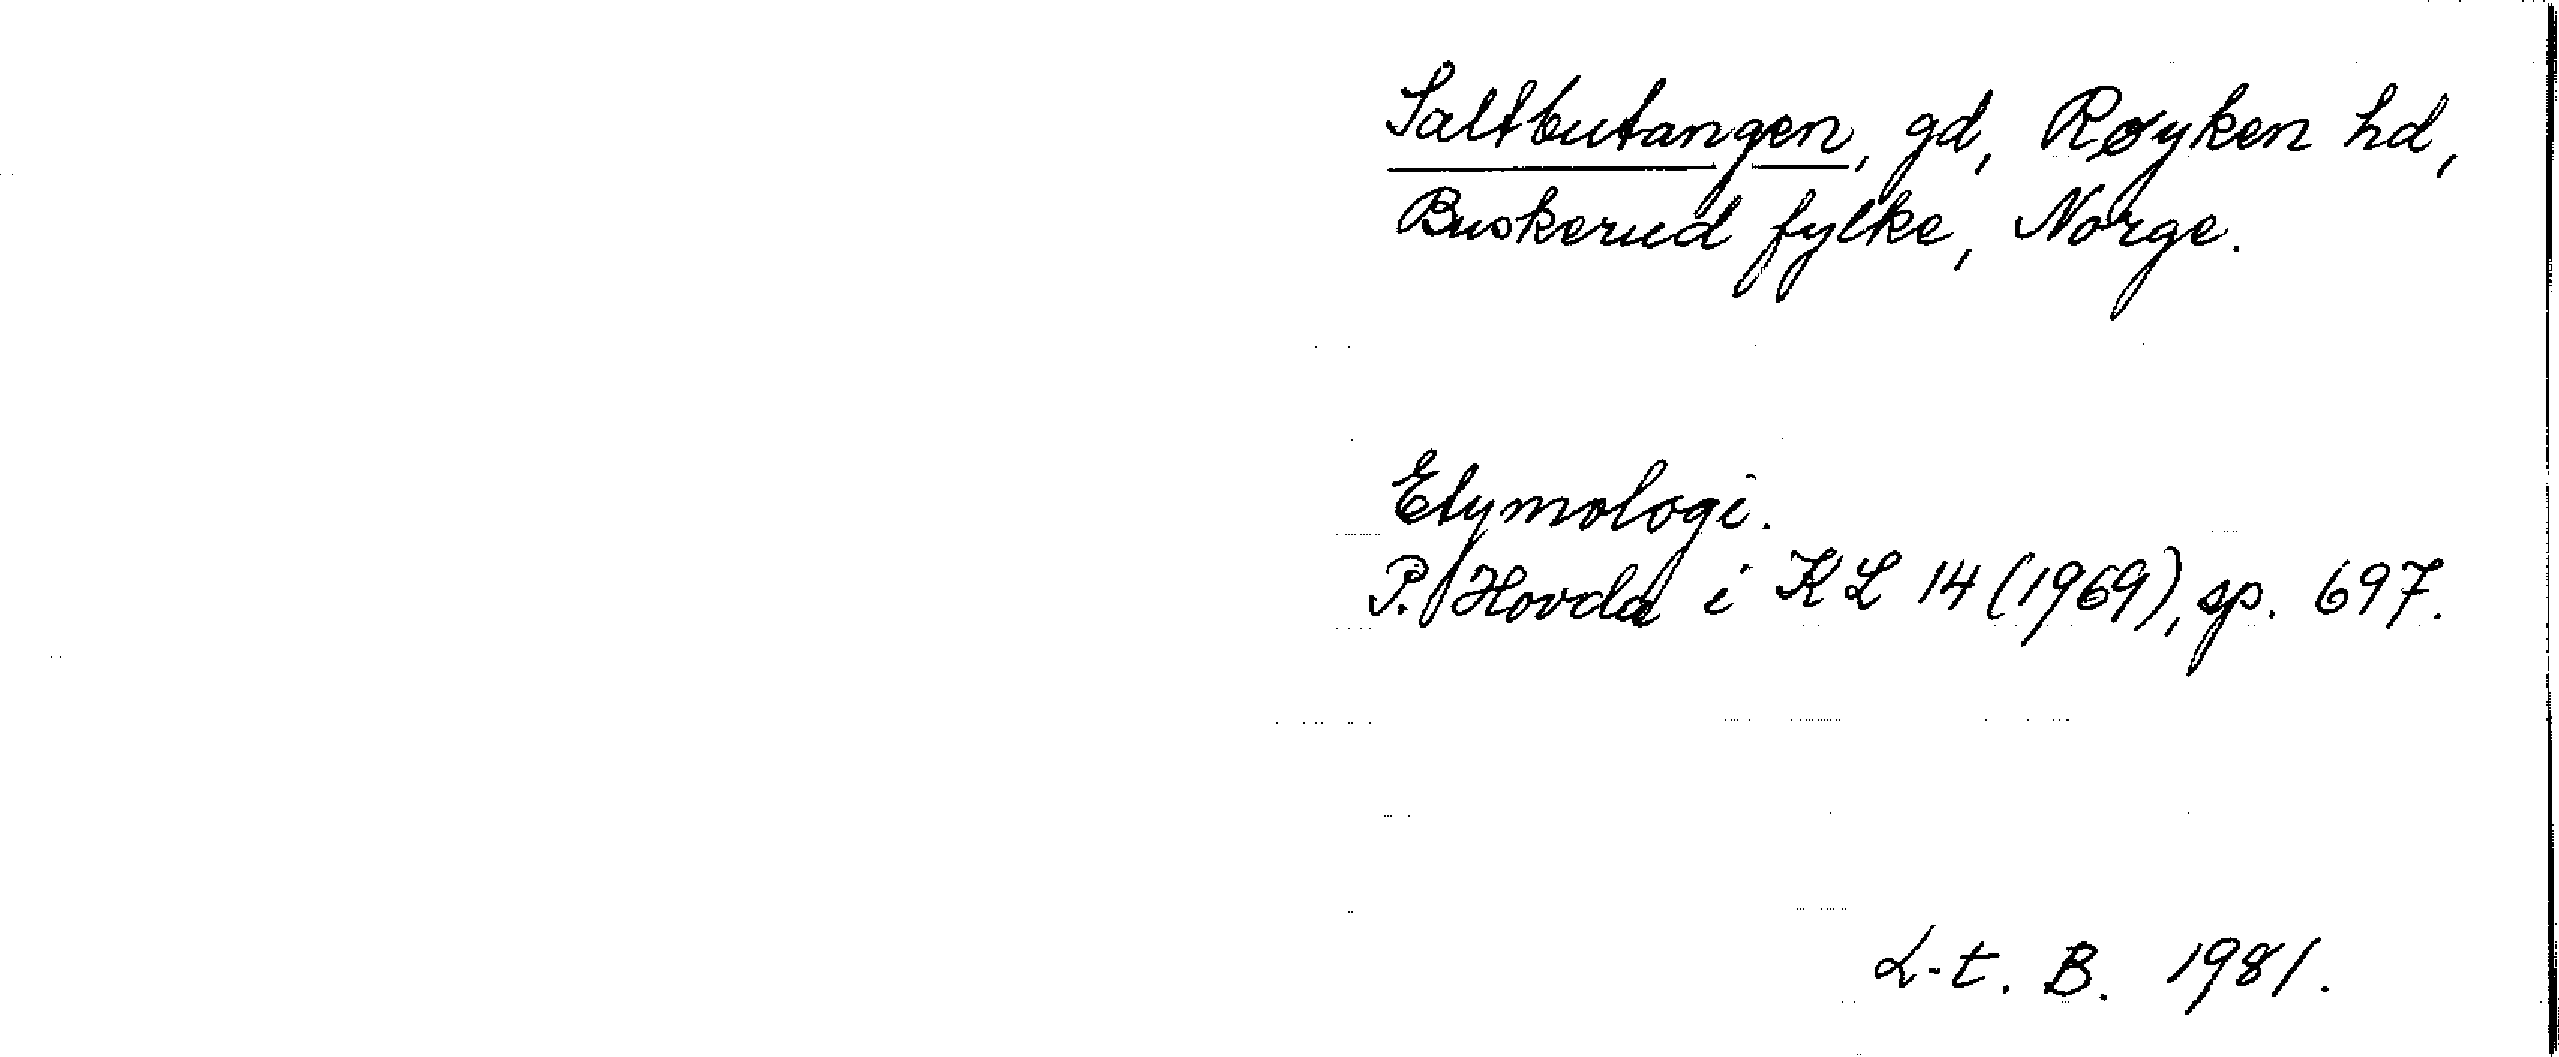 Saltbutangen, gd, Røyken hd,
Buskerud fylke, Norge.
Etymologi.
P. Hovda i KL 14 (1969), sp. 697.
L-t. B. 1981.